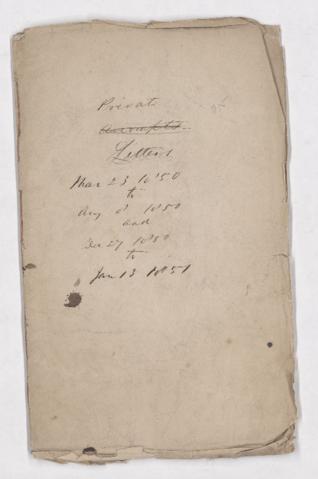 Private
Accounts
Letters
Mar 23 1850
to
Aug 8 1850
and
Dec 27 1850
to
Jan 13 1851